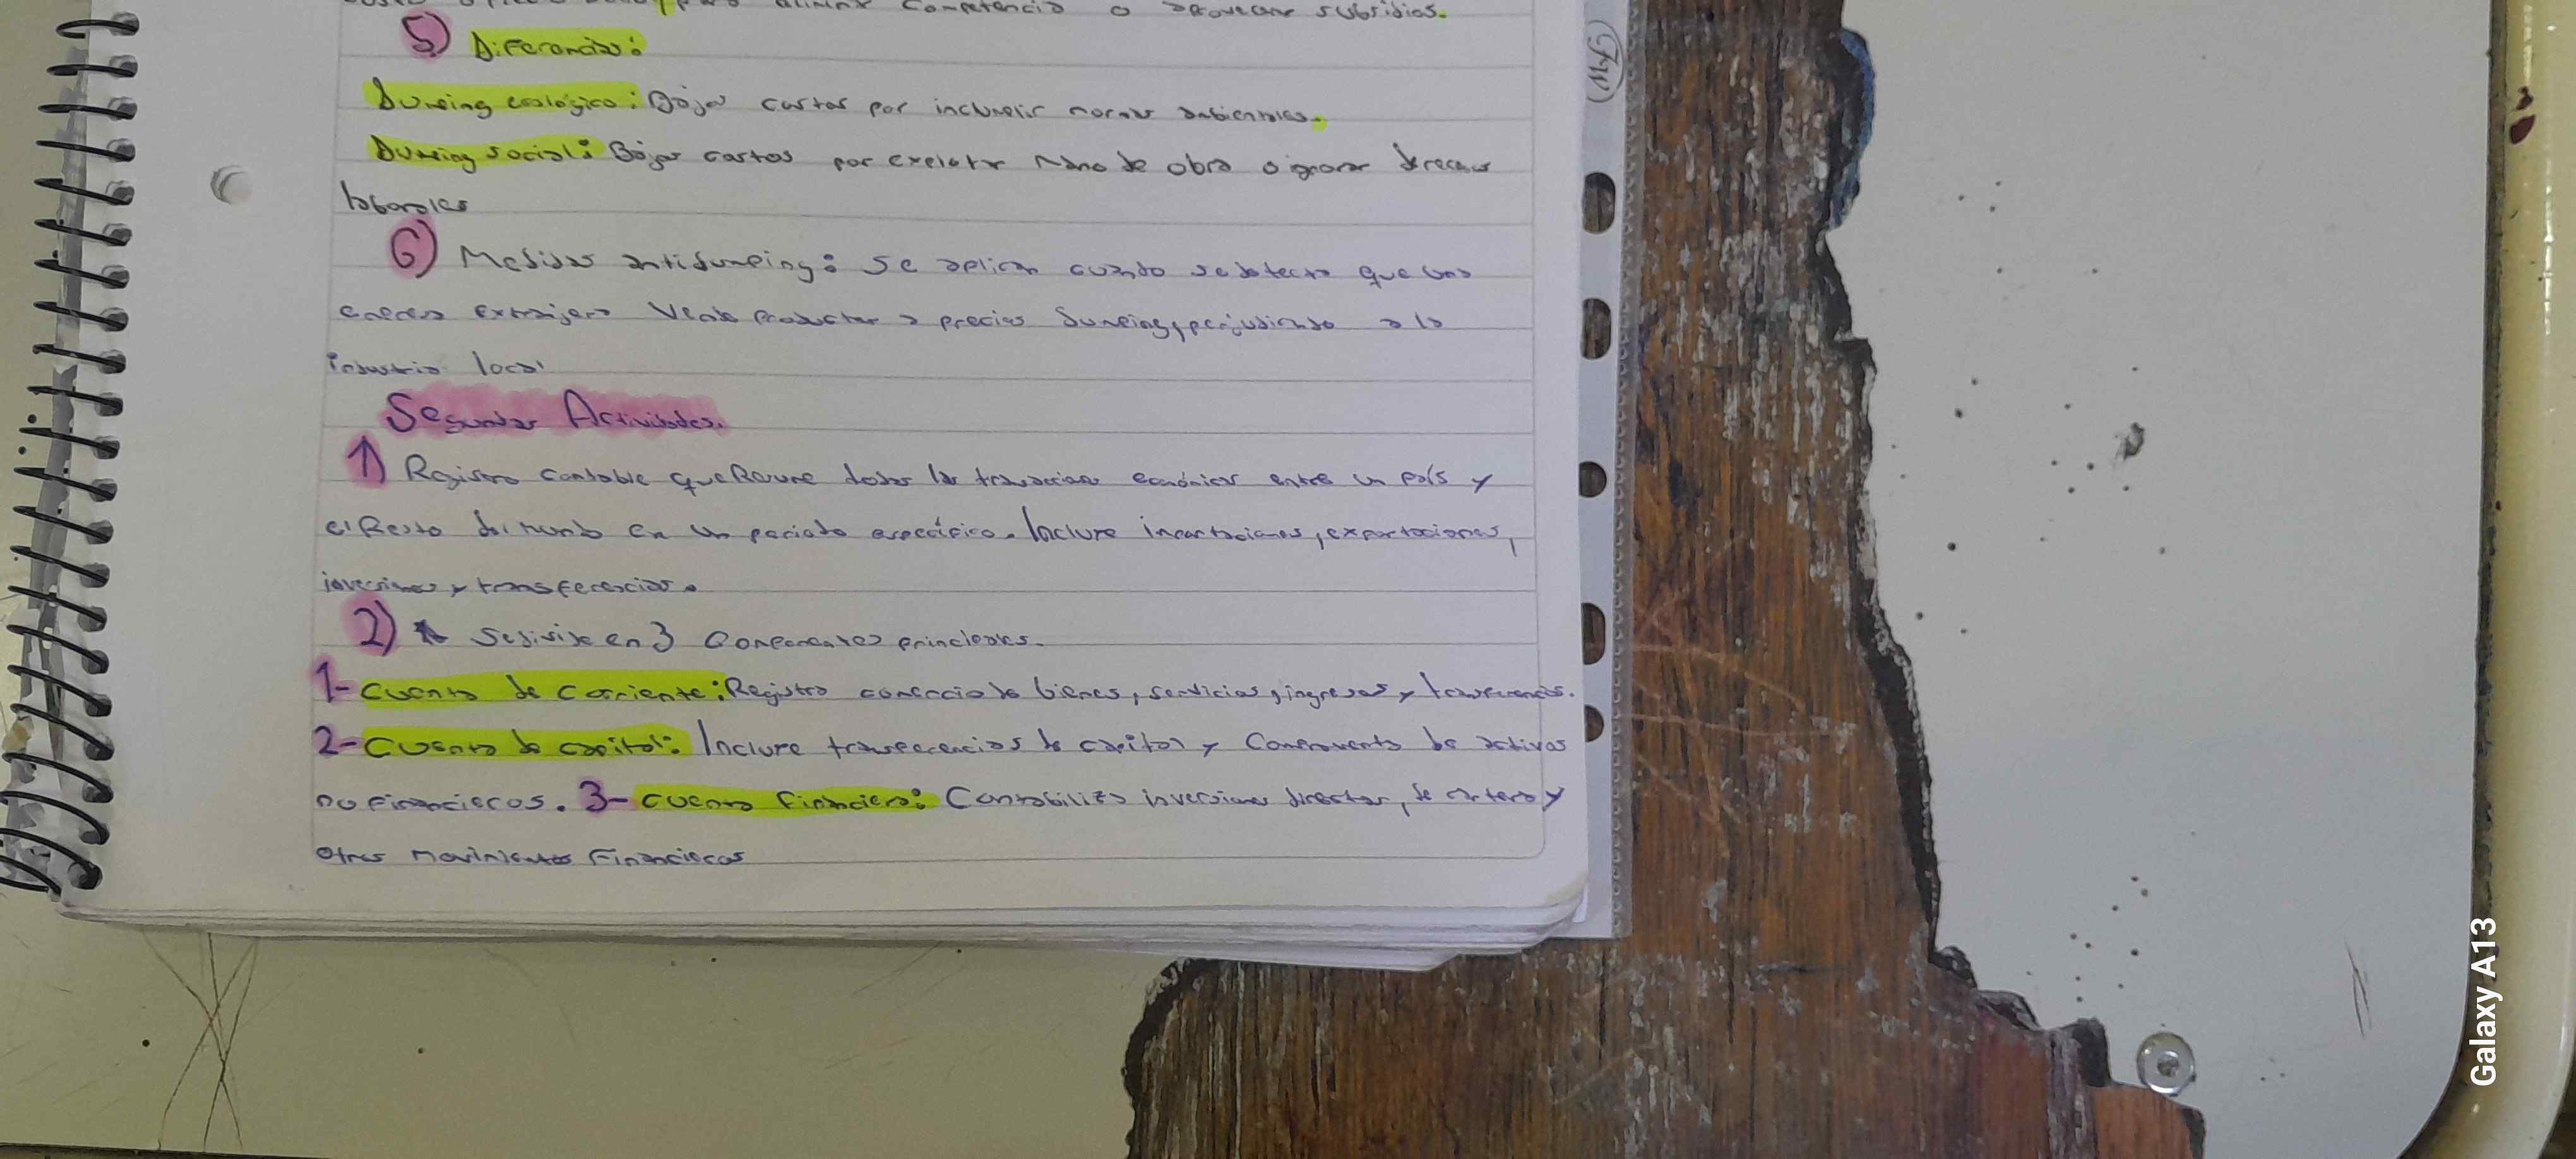 competencia o aprovechar subsidios.
5) Diferencias:
Dumping ecológico: Bajar costos por incumplir normas ambientales.
Dumping social: Bajar costos por explotar mano de obra o ignorar derechos
laborales
6) Medidas antidumping: Se aplican cuando se detecta que una
empresa extranjera vende productos a precios dumping, perjudicando a la
industria local
Segundas Actividades.
1) Registro contable que Reune todas las transacciones económicas entre un país y
el Resto del mundo en un periodo específico. Incluye importaciones, exportaciones,
inversiones y transferencias.
2) Se divide en 3 Componentes principales.
1- Cuenta de Corriente: Registra comercio de bienes, servicios, ingresos y transferencias.
2- Cuenta de capital: Incluye transferencias de capital y Compraventa de activos
no financieros. 3- Cuenta financiera: Contabiliza inversiones directas, de cartera y
otros movimientos financieros
Galaxy A13